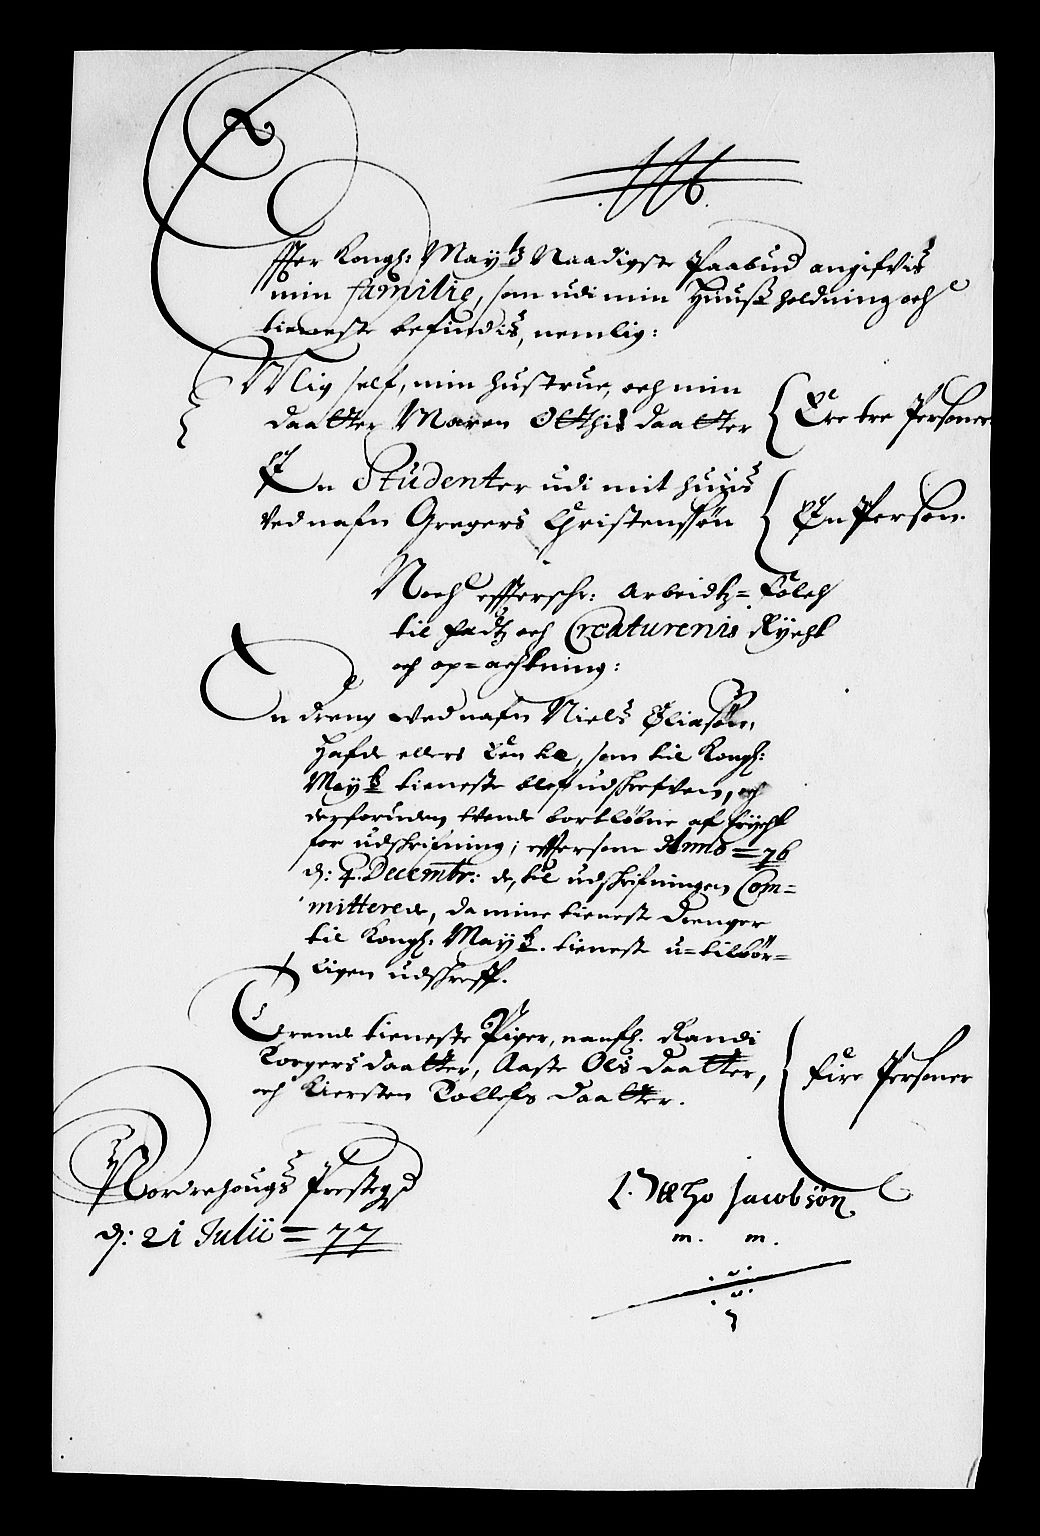 Effter Kongh: Mayts Naadigste Paabud angifvis
min familie, som udi min Huusz holdning och
tieneste befindis, nemlig:
Mig self, min hustrue, och min
daatter Maren Otthis daatter { Ere tre Personer
En Studenter udi mit huus
ved nafn Gregers Christenssøn { En Person.
Noch effterschr: Arbeidtz= Folch
til fadtz och Creaturenis Rycht
och op=achtning:
En dreng wed nafn Niels Eliasøn,
Hafde ellers tvende, som til Kongh:
Mayts tieneste blef udskrefven, och
desforuden tvende bortløbne af frycht
for udskrifning; effersom Anno = 76
d: 4 Decembr: de, til udskrifningen Com=
mitterede, da mine tieneste drenger
til Kongh: Mayts. tieneste u=tilbør=
ligen udskreff.
Trende tieneste Piger, nanfl. Randi
Torgersdaatter, Aaste Ols daatter,
och Kiersten Tollefs daatter. { fire Personer
Nordrehougs Prestegd
d: 21 Julii = 77
L. Ottho Jacobsøn
m. m.